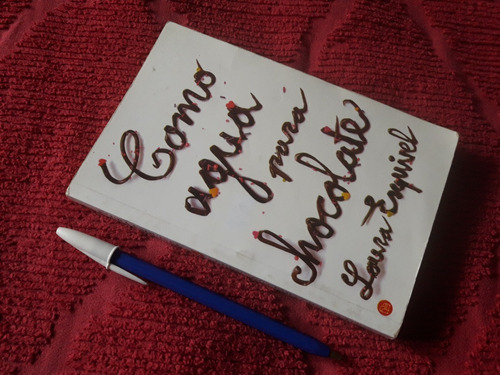 Como
agua
para
chocolate
Laura Esquivel